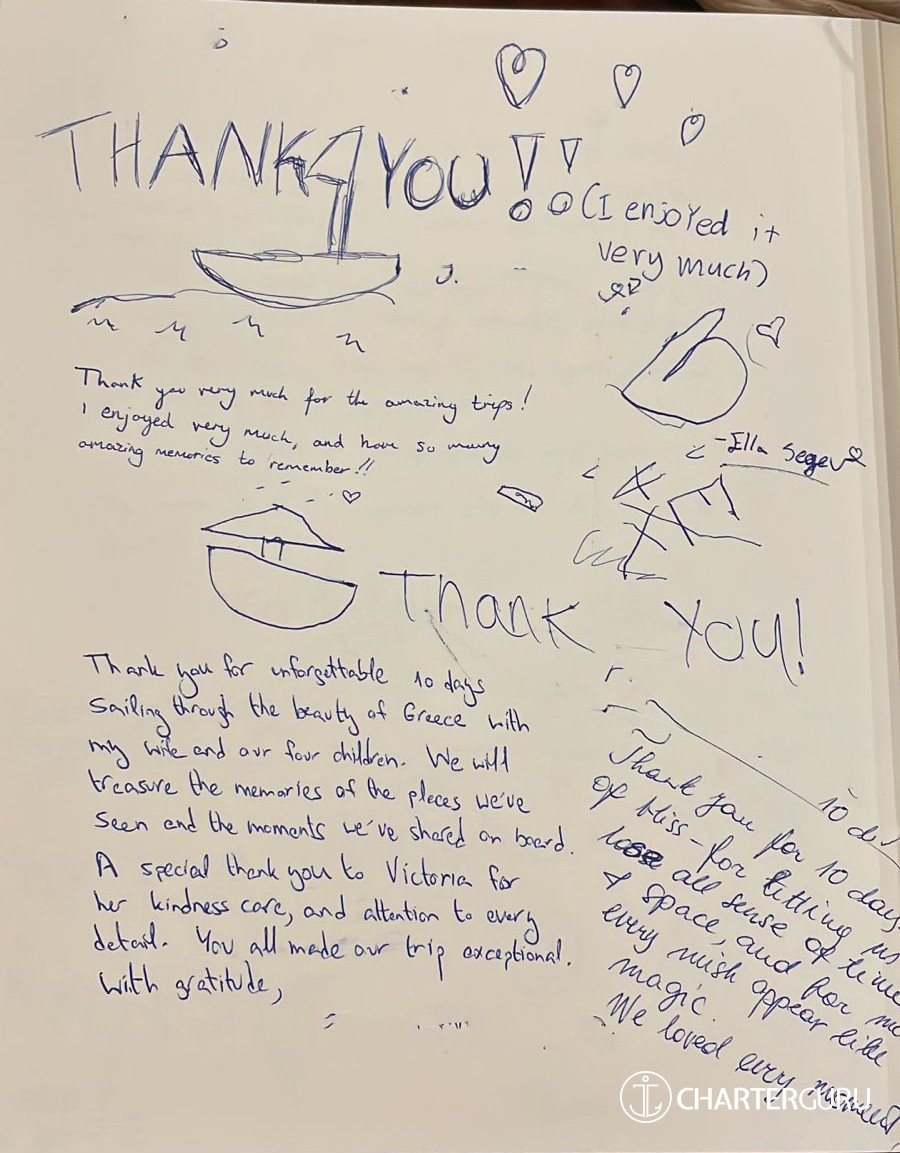 THANK YOU!!
(I enjoyed it
very much)
Thank you very much for the amazing trips!
I enjoyed very much, and have so many
amazing memories to remember!!
-Ella Segev
Thank You!
Thank you for unforgettable 10 days
Sailing through the beauty of Greece with
my wife and our four children. We will
treasure the memories of the places we've
seen and the moments we've shared on board.
A special thank you to Victoria for
her kindness care, and attention to every
detail. You all made our trip exceptional.
With gratitude,
10 da
Thank you for 10 days
of bliss - for letting us
lose all sense of time
& space, and for
every wish appear like
magic.
We loved every moment,
CHARTERGURU